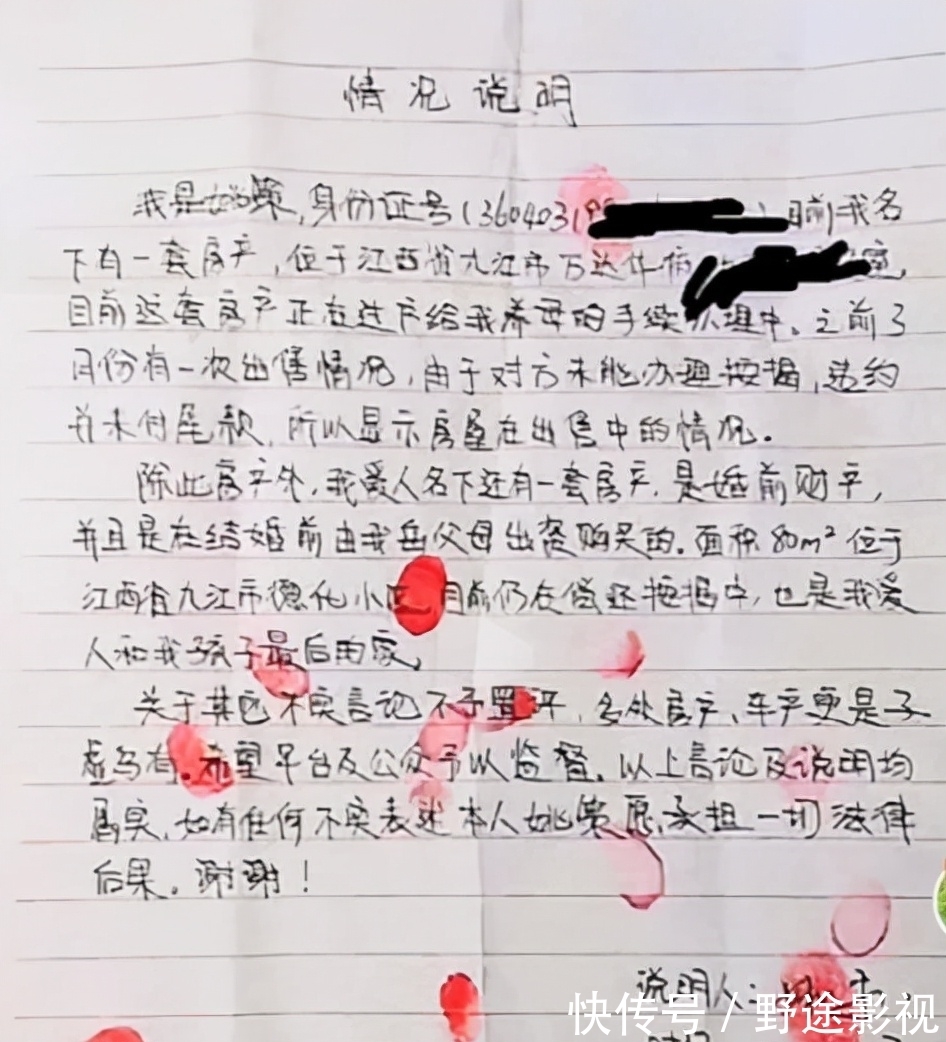 情况说明
我是姚策,身份证号(36040319 目前我名
下有一套房产,位于江西省九江市万达
目前这套房产正在过户给我养母的手续办理中。之前3
月份有一次出售情况,由于对方未能办理按揭,违约
并未付尾款,所以显示房屋在出售中的情况。
除此房产外,我爱人名下还有一套房产,是婚前财产,
并且是在结婚前由我岳父母出资购买的.面积80m²位于
江西省九江市德化小区目前仍在偿还按揭中,也是我爱
人和我孩子最后的家。
关于其它不实言论不予置评,多处房产、车产更是子
虚乌有。希望平台及公众予以监督。以上言论及说明均
属实,如有任何不实表述本人姚策愿承担一切法律
后果。谢谢!
说明人:姚策
快传号/野途影视